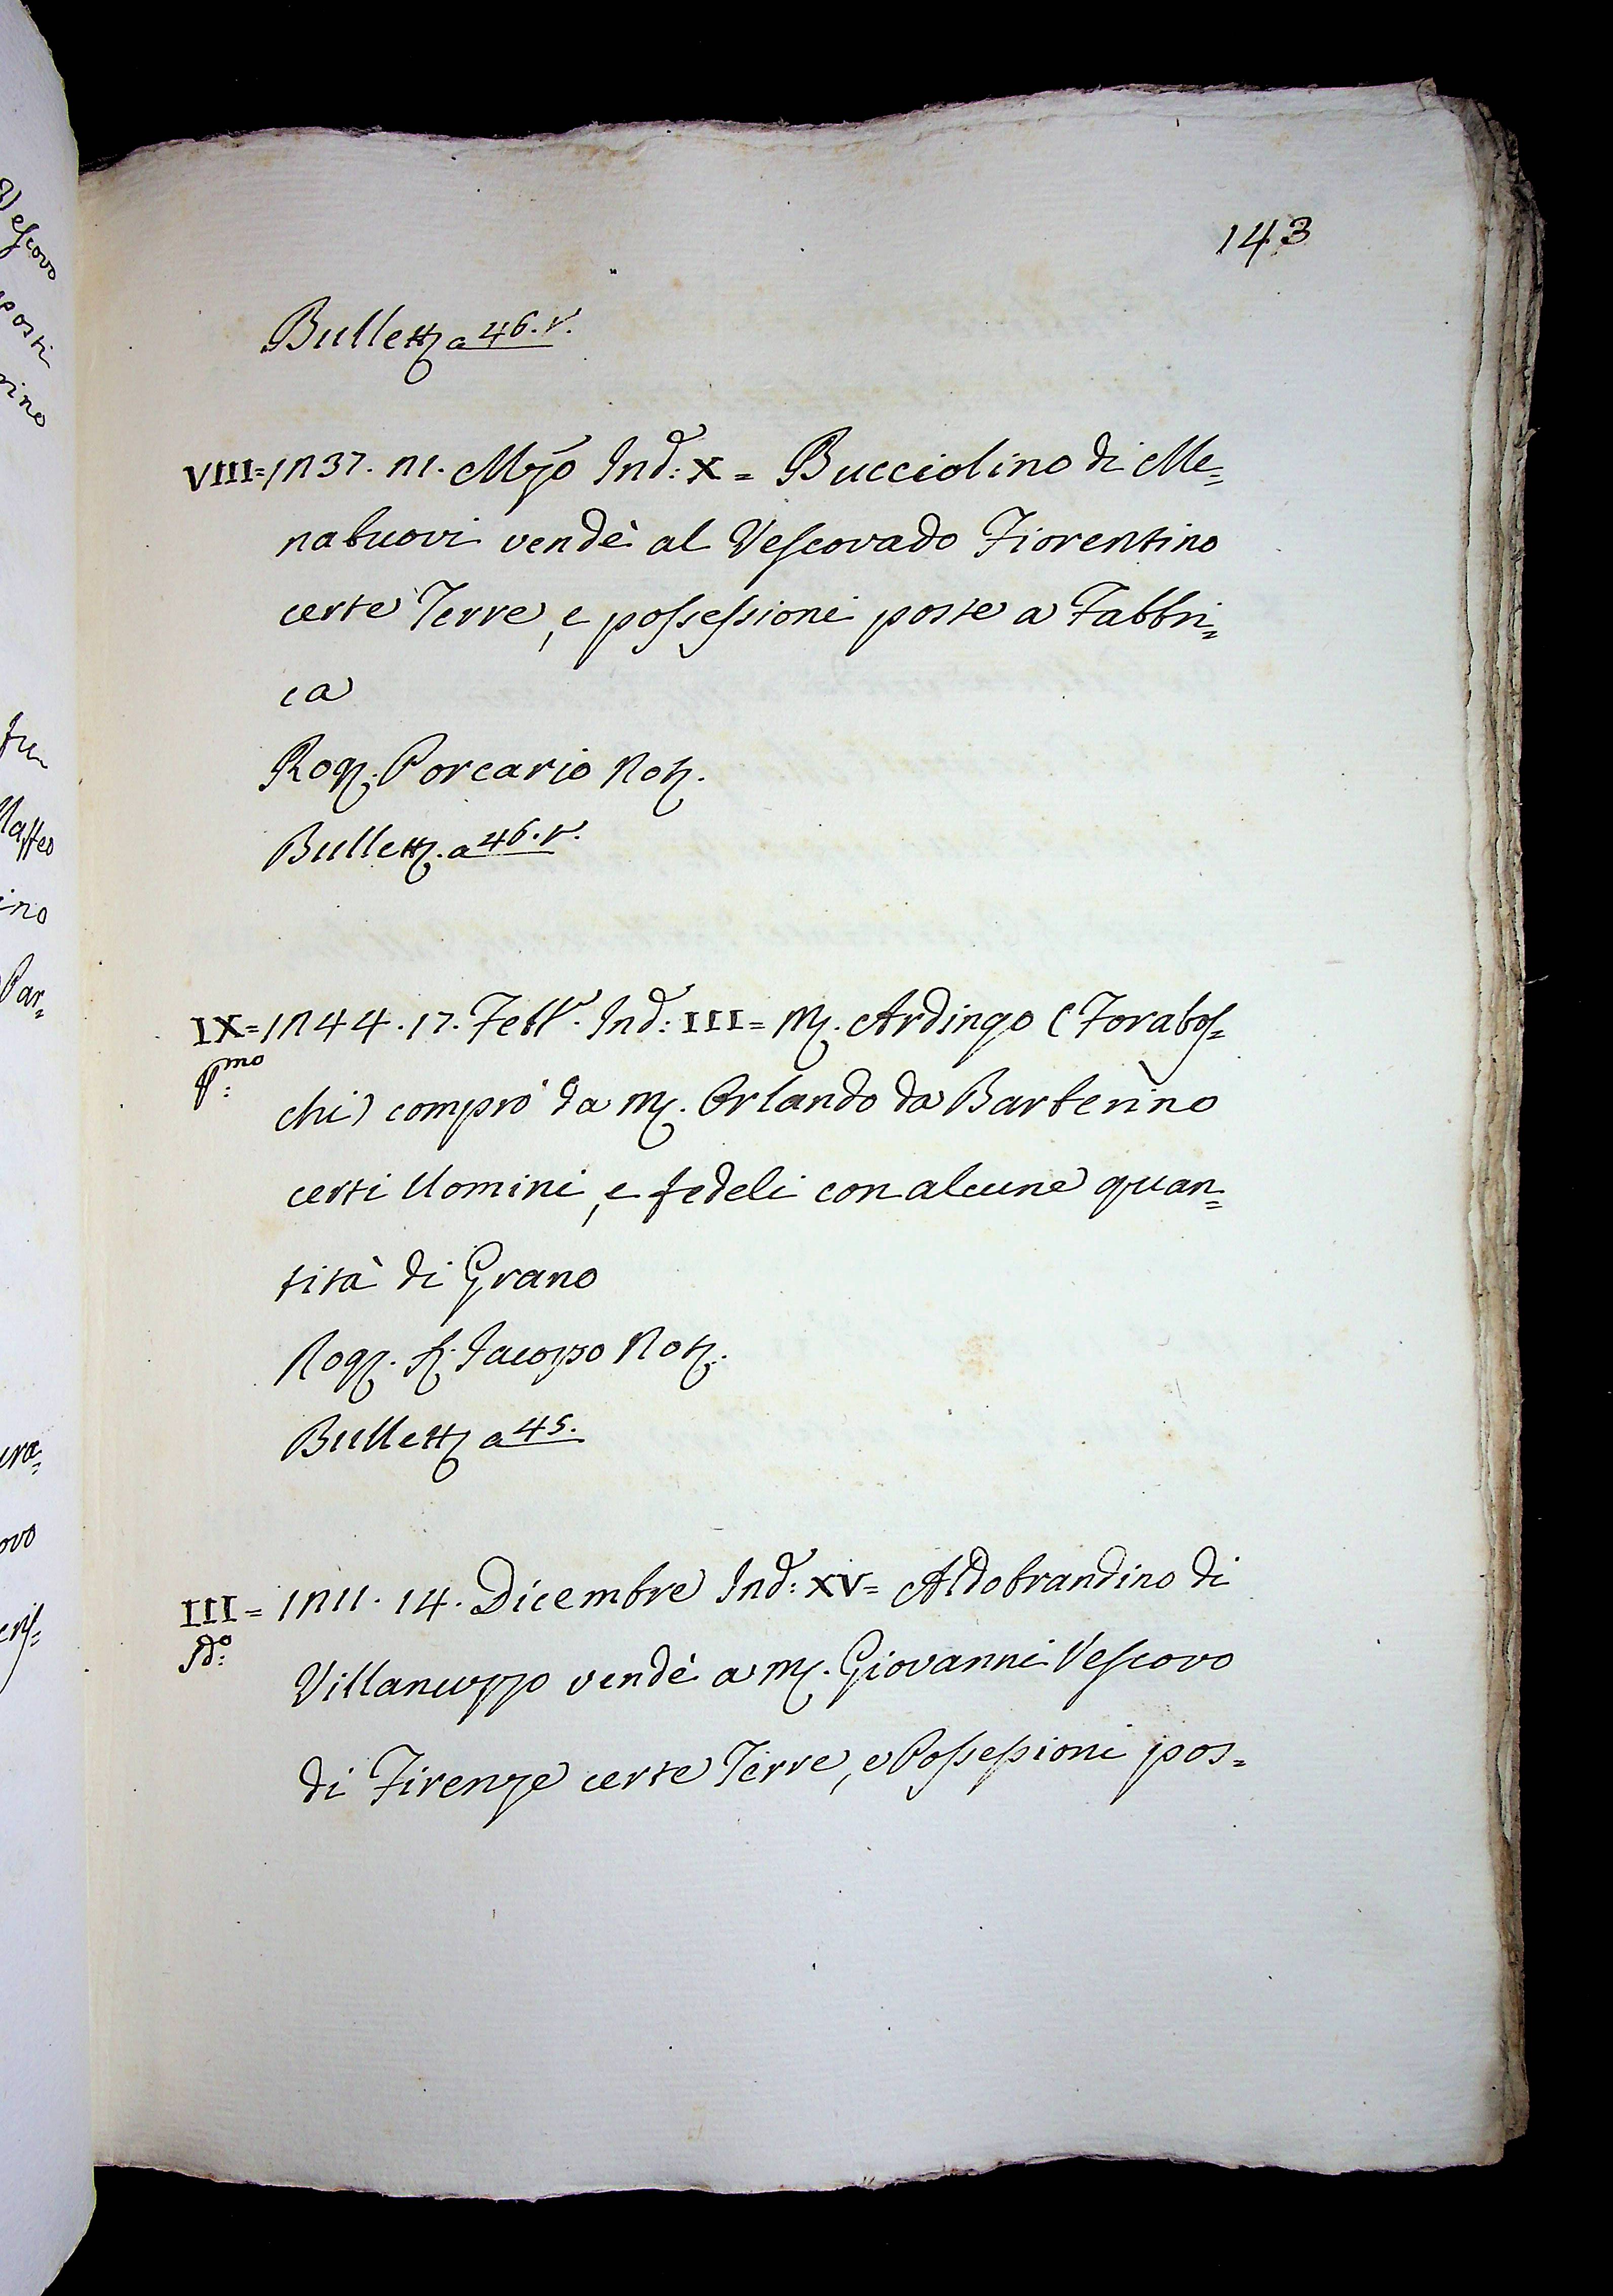 143
Bullett. a 46. v.
VIII = 1237. 21. Mzo Ind: X = Bucciolino di Me=
nabuovi vendè al Vescovado Fiorentino
certe Terre, e possessioni poste a Fabbri=
ca
Rog. Porcario Not.
Bullett. a 46. v.
IX = 1244. 17. Febb. Ind: III = M. Ardingo (Forabos=
pmo:
chi) comprò da M. Orlando da Barberino
certi Uomini, e fedeli con alcune quan=
tità di Grano
Rog. S. Iacopo Not.
Bullett. a 45.
III = 1211. 14. Dicembre Ind: XV = Aldobrandino di
sdo:
Villanuzzo vendè a M. Giovanni Vescovo
di Firenze certe Terre, e Possessioni pos=